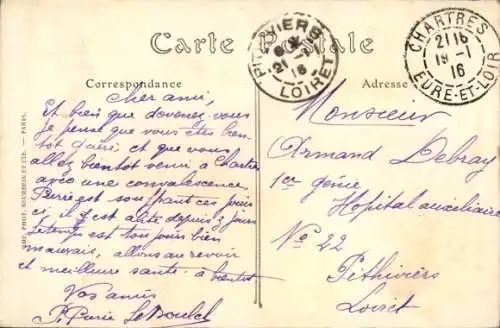 Carte Postale
Correspondance
Adresse
PITHIVIERS
21 -1
16
LOIRET
CHARTRES
21 15
19 -1
16
EURE-ET-LOIR
IMP. PHOT. NEURDEIN ET CIE. — PARIS.
Cher ami,
Et bien que devenez-vous
Je pense que vous êtes bien
tôt guéri et que vous
allez bientôt venir à Chartres
avec une convalescence
Pierre est souffrant ces jours
ci, il est alité depuis 3 jours
Le temps est toujours bien
mauvais, allons au revoir
et meilleure santé. à bientôt
Vos amis
Monsieur
Armand Debray
1er génie
Hopital auxiliaire
No 22
Pithiviers
Loiret